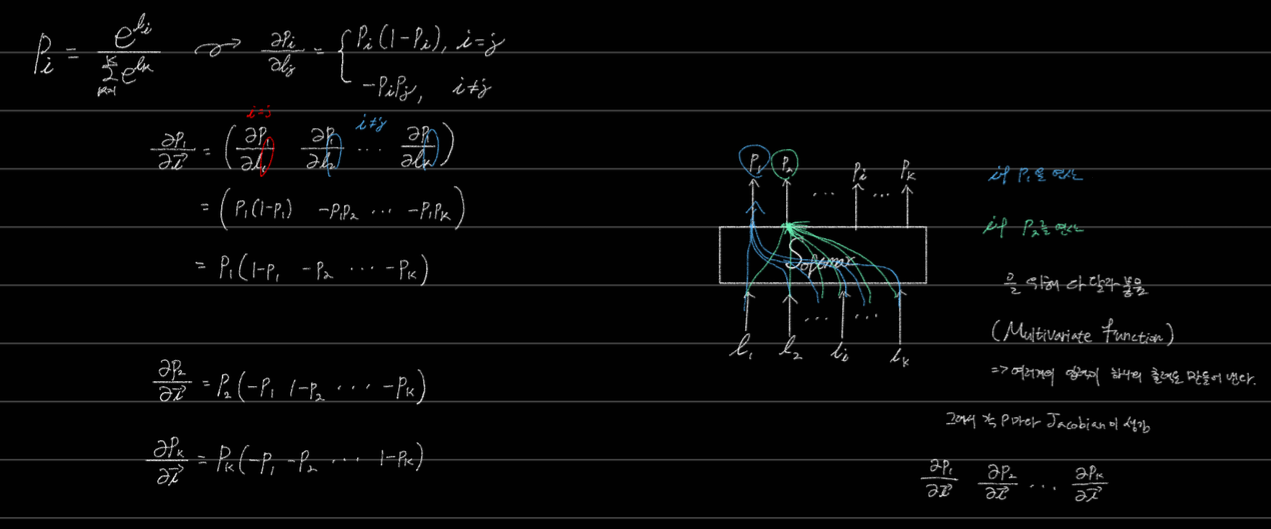 P_i = e^{l_i} / Σ_{k=1}^{K} e^{l_k} → ∂P_i/∂l_j = { P_i(1-P_i), i=j
-P_iP_j, i≠j
i=j
i≠j
∂P_1/∂l⃗ = ( ∂P_1/∂l_1 ∂P_1/∂l_2 ⋯ ∂P_1/∂l_K )
= ( P_1(1-P_1) -P_1P_2 ⋯ -P_1P_K )
= P_1( 1-P_1 -P_2 ⋯ -P_K )
∂P_2/∂l⃗ = P_2( -P_1 1-P_2 ⋯ -P_K )
∂P_K/∂l⃗ = P_K( -P_1 -P_2 ⋯ 1-P_K )
P_1 P_2 ⋯ P_i ⋯ P_K
Softmax
⋯ ⋯
l_1 l_2 l_i l_K
if P_1을 연산
if P_2를 연산
을 위해 다 달라붙음
(Multivariate Function)
=> 여러개의 입력이 하나의 출력을 만들어 낸다.
그래서 각 P마다 Jacobian이 생김
∂P_1/∂l⃗ ∂P_2/∂l⃗ ⋯ ∂P_K/∂l⃗